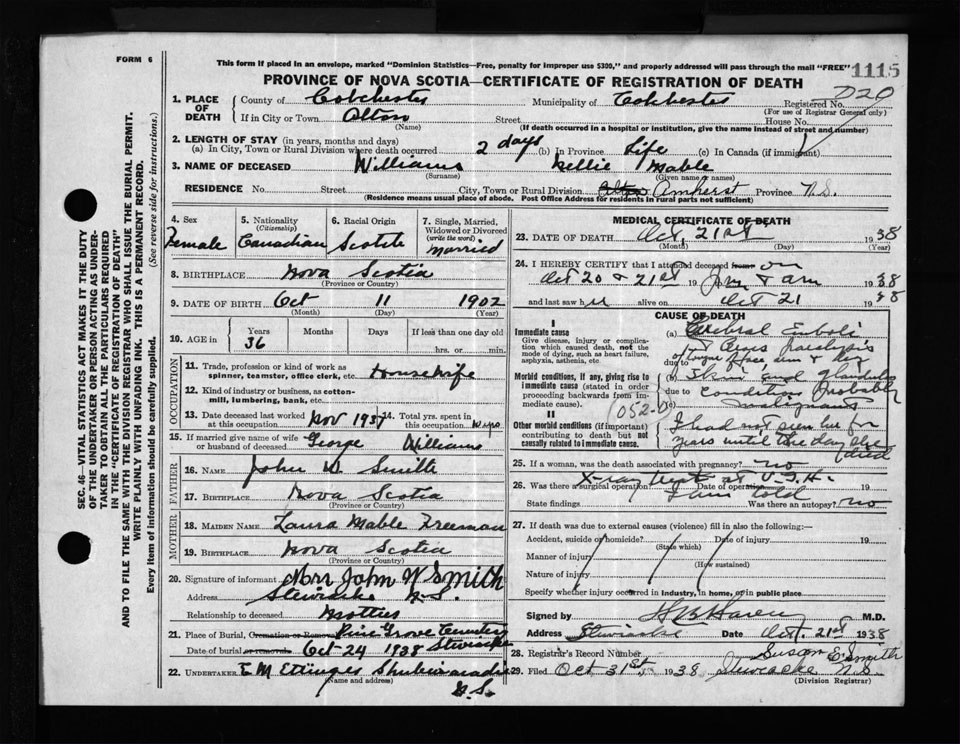 FORM 6
This form if placed in an envelope, marked "Dominion Statistics—Free, penalty for improper use $300," and properly addressed will pass through the mail "FREE"
1115
PROVINCE OF NOVA SCOTIA—CERTIFICATE OF REGISTRATION OF DEATH
1. PLACE OF DEATH
County of Colchester Municipality of Colchester Registered No. D20
(For use of Registrar General only)
If in City or Town Alton Street House No.
(Name) (If death occurred in a hospital or institution, give the name instead of street and number)
2. LENGTH OF STAY (in years, months and days)
(a) In City, Town or Rural Division where death occurred 2 days (b) In Province Life (c) In Canada (if immigrant)
3. NAME OF DECEASED Williams Nellie Mable
(Surname) (Given names)
RESIDENCE No. Street City, Town or Rural Division Alton Amherst Province N.S.
(Residence means usual place of abode. Post Office Address for residents in rural parts not sufficient)
4. Sex
Female
5. Nationality
(Citizenship)
Canadian
6. Racial Origin
Scotch
7. Single, Married, Widowed or Divorced
(write the word)
Married
8. BIRTHPLACE Nova Scotia
(Province or Country)
9. DATE OF BIRTH Oct 11 1902
(Month) (Day) (Year)
10. AGE in
Years Months Days If less than one day old
36 hrs. or min.
OCCUPATION
11. Trade, profession or kind of work as spinner, teamster, office clerk, etc. Housewife
12. Kind of industry or business, as cotton-mill, lumbering, bank, etc.
13. Date deceased last worked at this occupation Nov 1937
14. Total yrs. spent in this occupation
15. If married give name of wife or husband of deceased George Williams
FATHER
16. NAME John W Smith
17. BIRTHPLACE Nova Scotia
(Province or Country)
MOTHER
18. MAIDEN NAME Laura Mable Freeman
19. BIRTHPLACE Nova Scotia
(Province or Country)
20. Signature of informant Mrs John W Smith
Address Stewiacke N.S.
Relationship to deceased Mother
21. Place of Burial, Cremation or Removal Pine Grove Cemetery
Stewiacke
Date of burial or removal Oct-24 1938
22. UNDERTAKER E M Ettinger Shubenacadie
(Name and address)
N.S.
MEDICAL CERTIFICATE OF DEATH
23. DATE OF DEATH Oct, 21st 1938
(Month) (Day) (Year)
24. I HEREBY CERTIFY that I attended deceased from on
Oct 20 & 21st 19 1938
and last saw her alive on Oct 21 1938
CAUSE OF DEATH
I
Immediate cause
Give disease, injury or complication which caused death, not the mode of dying, such as heart failure, asphyxia, asthenia, etc.
(a) Cerebral Emboli
of tongue, face, arm & leg
due to
Morbid conditions, if any, giving rise to immediate cause (stated in order proceeding backwards from immediate cause).
(b) Skin and glandular
due to condition probably
(c) malignant
II
Other morbid conditions (if important) contributing to death but not causally related to immediate cause.
I had not seen her for
years until the day she
died
25. If a woman, was the death associated with pregnancy? no
26. Was there a surgical operation? Date of operation 19
X-ray dept at V.G.H.
I am told
State findings Was there an autopsy? no
27. If death was due to external causes (violence) fill in also the following:—
Accident, suicide or homicide? Date of injury 19
(State which)
Manner of injury
(How sustained)
Nature of injury
Specify whether injury occurred in industry, in home, or in public place
Signed by M.D.
Address Stewiacke Date Oct. 21st 1938
28. Registrar's Record Number
Susan E Smith
29. Filed Oct 31st, 1938 Stewiacke N.S.
(Division Registrar)
SEC. 46—VITAL STATISTICS ACT MAKES IT THE DUTY
OF THE UNDERTAKER OR PERSON ACTING AS UNDERTAKER TO OBTAIN ALL THE PARTICULARS REQUIRED
IN THE "CERTIFICATE OF REGISTRATION OF DEATH"
AND TO FILE THE SAME WITH THE DIVISION REGISTRAR WHO SHALL ISSUE THE BURIAL PERMIT.
WRITE PLAINLY WITH UNFADING INK. THIS IS A PERMANENT RECORD.
Every item of information should be carefully supplied. (See reverse side for instructions.)